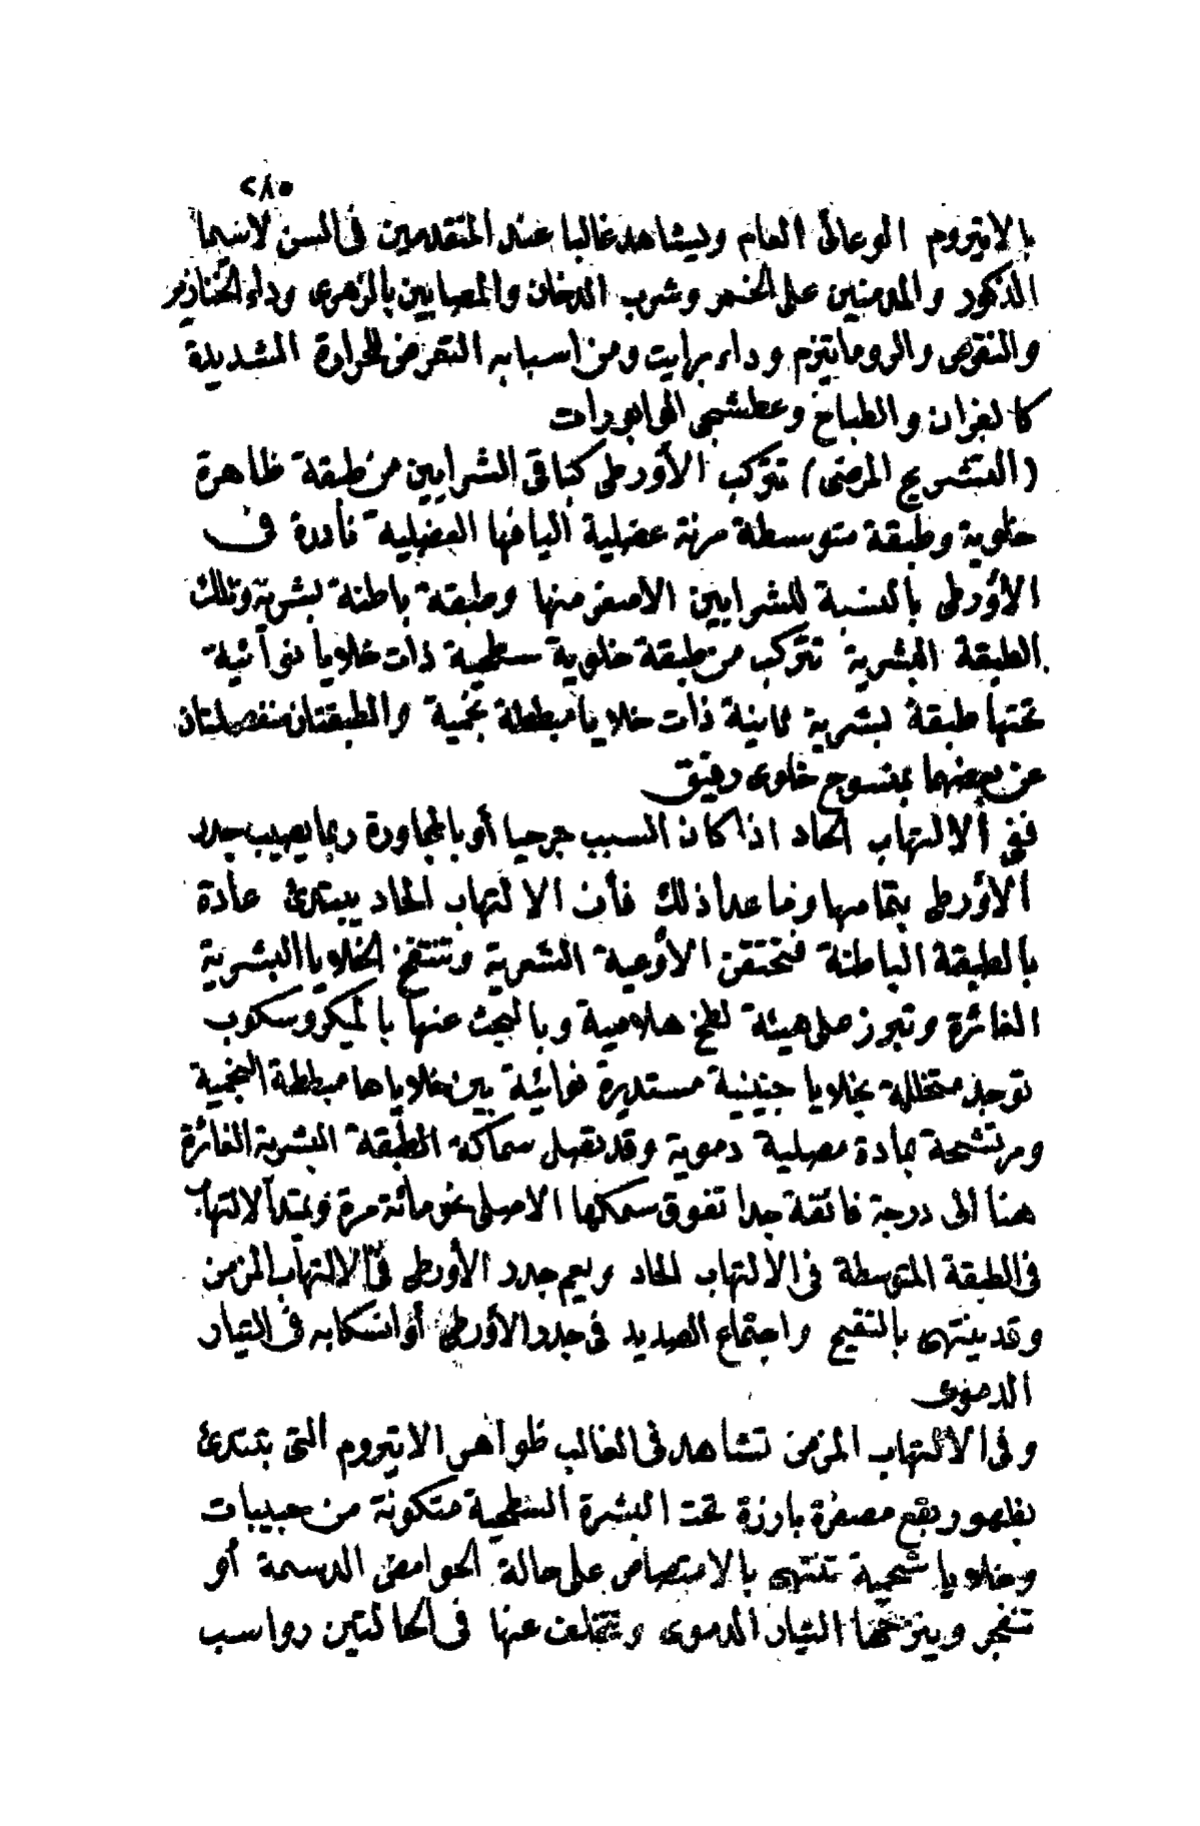 ٢٨٥
بالاتيروم الوعائى العام ويشاهد غالبا عند المتقدمين فى السن لاسيما
الذكور والمدمنين على الخمر وشرب الدخان والمصابين بالزهرى وداء الخنازير
والنقرس والروماتيزم وداء برايت ومن اسبابه التعرض للحرارة الشديدة
كالفران والطباخ وعطشجى الوابورات
(التشريح المرضى) تتركب الأورطى كباقى الشرايين من طبقة ظاهرة
خلوية وطبقة متوسطة مرنة عضلية أليافها العضلية نادرة فى
الأورطى بالنسبة للشرايين الاصغر منها وطبقة باطنة بشرية وتلك
الطبقة البشرية تتركب من طبقة خلوية سطحية ذات خلايا نوآئية
تحتها طبقة بشرية ثانية ذات خلايا مبططة نجمية والطبقتان منفصلتان
عن بعضهما بمنسوج خلوى رقيق
ففى ألالتهاب الحاد اذا كان السبب جرحيا أو بالمجاورة ربما يصيب جدر
ألأورطى بتمامها وما عدا ذلك فأن الالتهاب الحاد يبتدئ عادة
بالطبقة الباطنة فتحتقن الأوعية الشعرية وتنتفخ الخلايا البشرية
الغائرة وتبرز على هيئة لطخ هلامية وبالبحث عنها بالميكروسكوب
توجد متخللة بخلايا جنينية مستديرة نوائية بين خلاياها مبططة النجمية
ومرتشحة بمادة مصلية دموية وقد تصل سماكة الطبقة البشرية الغائرة
هنا الى درجة فائقة جدا تفوق سمكها الاصلى نحو مائة مرة ويمتد آلالتهاب
فى الطبقة المتوسطة فى الألتهاب الحاد ويعم جدر الأورطى فى الالتهاب المزمن
وقد ينتهى بالتقيح واجتماع الصديد فى جدر الأورطى أو انسكابه فى التيار
الدموى
وفى الألتهاب المزمن تشاهد فى الغالب ظواهر الاتيروم التى تبتدئ
بظهور بقع مصفرة بارزة تحت البشرة السطحية متكونة من حبيبات
وخلايا شحمية تنتهى بالامتصاص على حالة الحوامض الدسمة أو
تنفجر وينزحها التيار الدموى ويتخلف عنها فى الحالتين رواسب